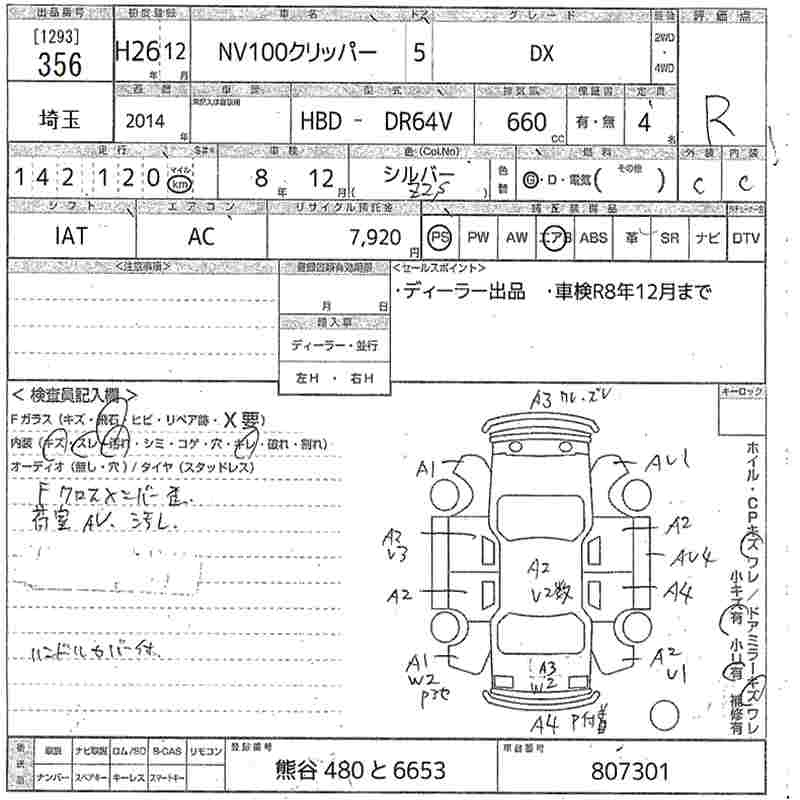 出品番号 初度登録 車名 ドア グレード 評価点
[1293]
356 H26 12 NV100クリッパー 5 DX 2WD・4WD
年 月
埼玉 2014年 型式 HBD - DR64V 排気量 660cc 保証書 有・無 定員 4名 R
走行 車検 色(Col.No) 燃料 外装 内装
142120 マイル km 8年 12月 シルバー 色替 G・D・電気( その他 ) C C
Z2S
シフト エアコン リサイクル預託金
IAT AC 7,920円 PS PW AW エアB ABS 革 SR ナビ DTV
<注意事項> 登録書類有効期限 <セールスポイント>
月 日 ・ディーラー出品 ・車検R8年12月まで
輸入車
ディーラー・並行
左H ・ 右H
<検査員記入欄> キーロック
Fガラス(キズ・飛石・ヒビ・リペア跡・X要)
内装(キズ・スレ・汚れ・シミ・コゲ・穴・キレ・破れ・割れ)
オーディオ(無し・穴)/タイヤ(スタッドレス)
F クロスメンバー歪.
荷室 AV、汚れ.
ハンドルカバー付.
A3 ワレ・ズレ
A1 AU1
A3
U3 A2
A2 AU4
A2 U2数 A4
A1
W2
Pヌケ A3
W2 A2
U1
A4 P付着
ホイル・CPキズワレ/ドアミラーキズワレ
小キズ有 小U有 補修有
後送品 取説 ナビ取説 ロム/SD B-CAS リモコン 登録番号 車台番号
ナンバー スペアキー キーレス スマートキー 熊谷 480 と 6653 807301